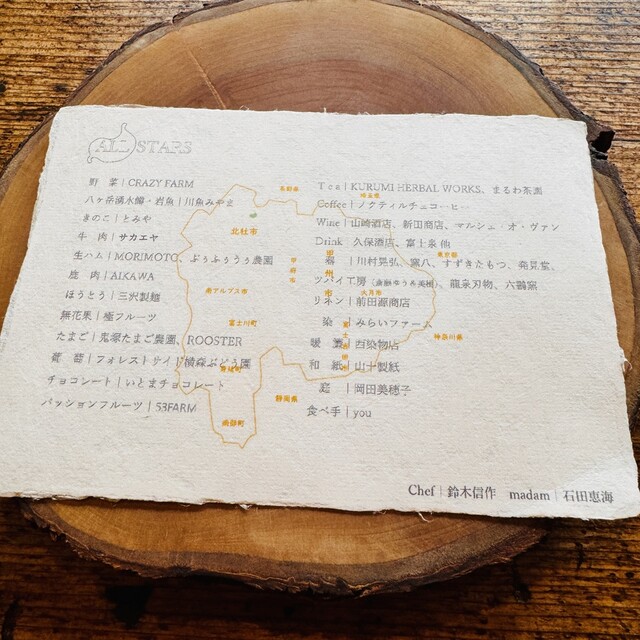 ALL STARS
野 菜 | CRAZY FARM
八ヶ岳湧水鱒・岩魚 | 川魚みやま
きのこ | とみや
牛 肉 | サカエヤ
生ハム | MORIMOTO、ぶぅふぅうぅ農園
鹿 肉 | AIKAWA
ほうとう | 三沢製麺
無花果 | 極フルーツ
たまご | 鬼塚たまご農園、ROOSTER
葡 萄 | フォレストサイド横森ぶどう園
チョコレート | いとまチョコレート
パッションフルーツ | 53FARM
Tea | KURUMI HERBAL WORKS、まるわ茶園
Coffee | ノクティルチェコーヒー
Wine | 山崎酒店、新田商店、マルシェ・オ・ヴァン
Drink 久保酒店、富士泉 他
器 | 川村晃弘、窯八、すずきたもつ、発見堂、
ツバイ工房、龍泉刃物、六鶴窯
リネン | 前田源商店
染 | みらいファーム
暖 簾 | 西染物店
和 紙 | 山十製紙
庭 | 岡田美穂子
食べ手 | you
長野県
埼玉県
北杜市
東京都
甲府市
甲州市
南アルプス市
大月市
富士川町
神奈川県
静岡県
南部町
Chef | 鈴木信作 madam | 石田恵海